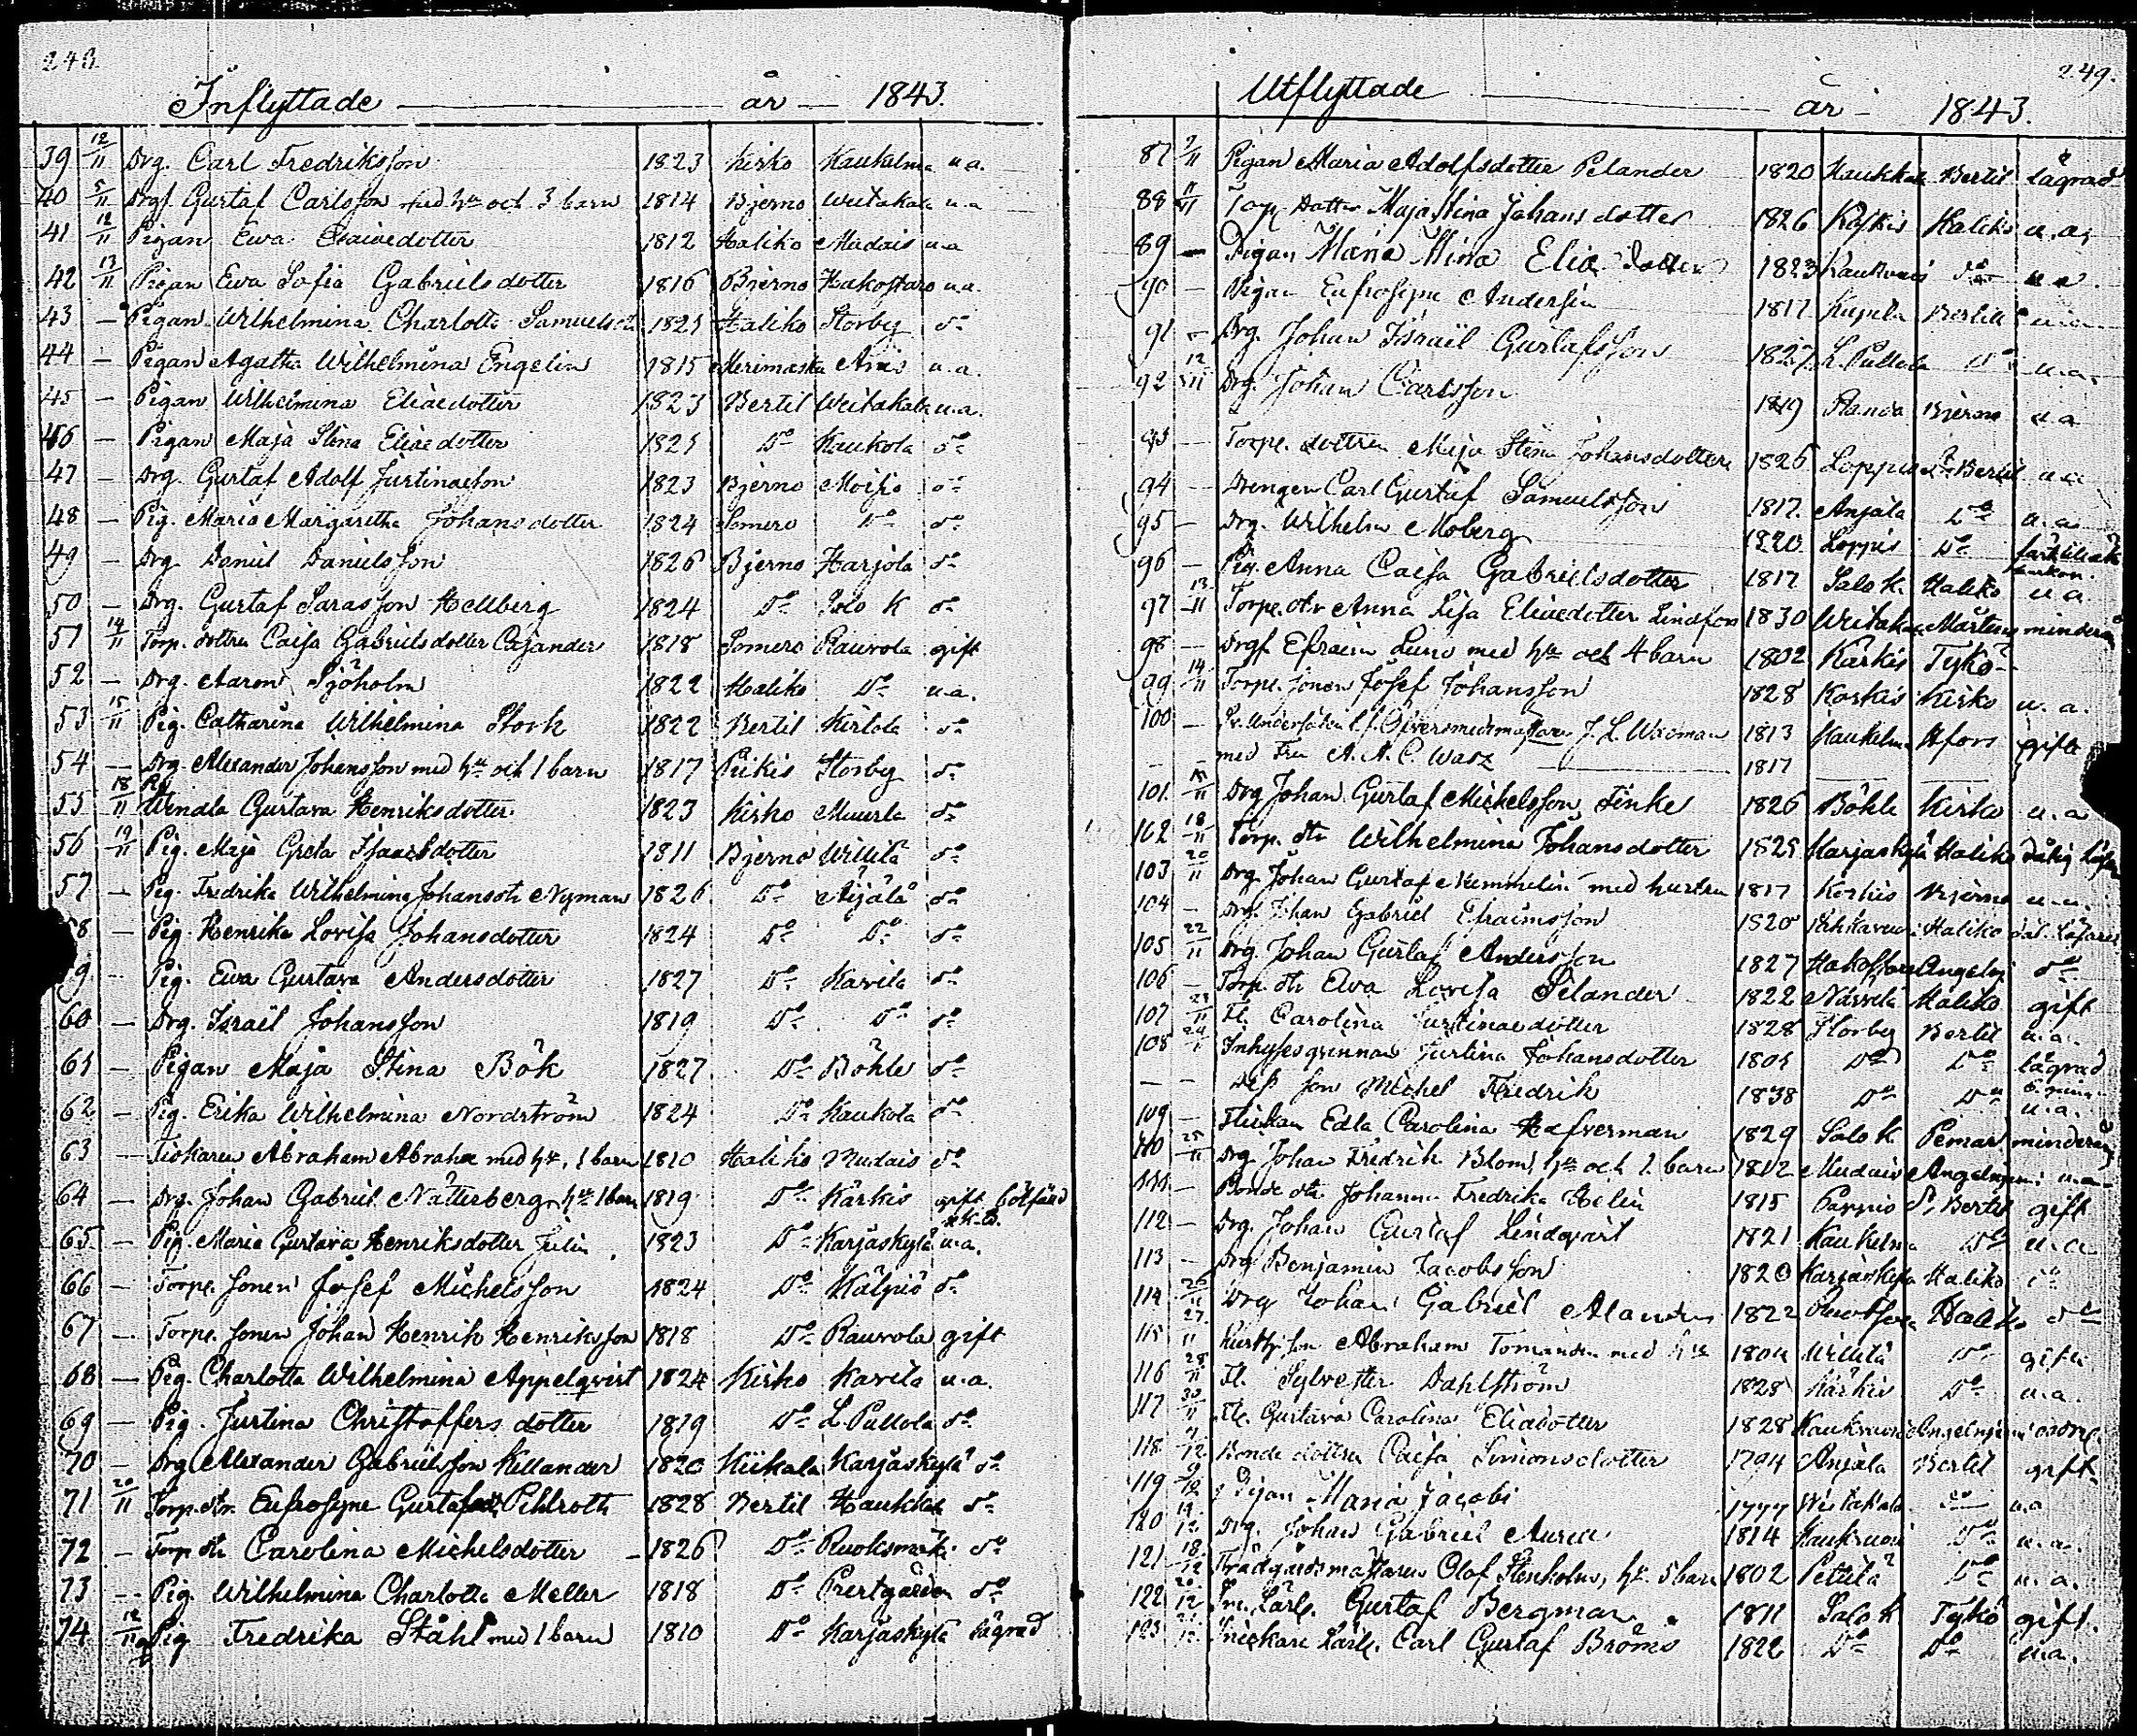 248.
Inflyttade år 1843.
39 12/11 Drg. Carl Fredriksson 1823 Kisko Kaukelma u.a.
40 5/11 Drg. Gustaf Carlsson med h:u och 3 barn 1814 Bjerno Weitakala u.a
41 12/11 Pigan Ewa Esaiedotter 1812 Haliko Madais u.a
42 13/11 Pigan Ewa Sofia Gabrielsdotter 1816 Bjerno Hakostaro u.a.
43 — Pigan Wilhelmina Charlotta Samuelsd:r 1825 Haliko Storby d:o
44 — Pigan Agatha Wilhelmina Engelin 1815 Merimasku u.a.
45 — Pigan Wilhelmina Eliaedotter 1823 Bertil Weitakala u.a.
46 — Pigan Maja Stina Eliaedotter 1825 D:o Kaukola d:o
47 — Drg. Gustaf Adolf Justinaeson 1823 Bjerno Moisio d:o
48 — Pig. Maria Margaretha Johansdotter 1824 Somero D:o d:o
49 — Drg Daniel Danielsson 1826 Bjerno Harjola d:o
50 — Drg. Gustaf Sarasson Hellberg 1824 D:o Salo K d:o
51 14/11 Torp. dottren Caisa Gabrielsdotter Cajander 1818 Somero Rauvola gift
52 — Drg. Aaron Sjöholm 1822 Haliko D:o u.a.
53 15/11 Pig. Catharina Wilhelmina Stork 1822 Bertil Kirlola d:o
54 — Drg. Alexander Johansson med h:u och 1 barn 1817 Piikis Storby d:o
55 18/11 Pg Wendla Gustava Henriksdotter 1823 Kisko Muurla d:o
56 19/11 Pig. Maja Greta Isaaksdotter 1811 Bjerno Willilä d:o
57 — Pig. Fredrika Wilhelmina Johansdtr Nyman 1826 D:o Äijälä d:o
58 — Pig. Henrika Lovisa Johansdotter 1824 D:o D:o d:o
59 — Pig. Ewa Gustava Andersdotter 1827 D:o Kavila d:o
60 — Drg. Israël Johansson 1819 D:o D:o d:o
61 — Pigan Maja Stina Bök 1827 D:o Böhle d:o
62 — Pig. Erika Wilhelmina Nordström 1824 D:o Kaukola d:o
63 — Abraham Abraha med h:u, 1 barn 1810 Haliko Mudais d:o
64 — Drg. Johan Gabriel Nätterberg h:u 1 barn 1819 D:o Kärkis gift
65 — Pig. Maria Gustava Henriksdotter Julin 1823 D:o Karjaskylä u.a.
66 — Torpe. sonen Josef Michelsson 1824 D:o Kälpiö d:o
67 — Torpe. sonen Johan Henrik Henriksson 1818 D:o Rauvola gift
68 — Pig. Charlotta Wilhelmina Appelqvist 1824 Kisko Kavila u.a.
69 — Pig. Justina Christoffers dotter 1819 D:o L. Pullola d:o
70 — Drg Alexander Gabrielsson Killander 1820 Kiikala Karjaskylä d:o
71 20/11 Torp. dtr. Eufrosyne Gustafsdtr Pihlroth 1828 Bertil Haukkala d:o
72 — Torp dtr Carolina Michelsdotter 1826 D:o Ruoksmäki d:o
73 — Pig. Wilhelmina Charlotta Meller 1818 D:o Prestgården d:o
74 12/11 Pig Fredrika Ståhl med 1 barn 1810 D:o Karjaskylä lägrad
249.
Utflyttade år 1843.
87 9/11 Pigan Maria Adolfsdotter Pelander 1820 Haukkala Bertil lägrad
88 11/11 Torp. Dotter Maja Stina Johansdotter 1826 Haliko u.a.
89 — Pigan Maria Stina Eliae dotter 1823 Kaukvuori d:o u.a.
90 — Pigan Eufrosyne Andersin 1817 Kupila Bertil u.a.
91 — Drg. Johan Israël Gustafsson 1827 L. Pullola D:o u.a.
92 12/11 Drg. Johan Carlsson 1819 Bjerno u.a
93 — Torpe. dottren Maja Stina Johansdotter 1826 Loppis S:t Bertil u.a.
94 — Drengen Carl Gustaf Samuelsson 1817 Anjala D:o u.a
95 — Drg. Wilhelm Moberg 1820 Loppis D:o
96 — Pig. Anna Caisa Gabrielsdotter 1817 Salo K. Haliko u.a.
97 13/11 Torpe. dtr Anna Lisa Eliaedotter Lindfors 1830 Weitakala Mårtens minderå
98 — Drg. Efraim Lund med h:u och 4 barn 1802 Kärkis Tyko —
99 14/11 Torpe. sonen Josef Johansson 1828 Korkis Kisko u.a.
100 — J. L. Widman 1813 Kaukelma Åfors gift
— — med Fru A. A. C. Wasz 1817
101 15/11 Drg Johan Gustaf Michelsson Finke 1826 Böhle Kisko u.a
102 18/11 Torp. dtr Wilhelmina Johansdotter 1825 Karjaskylä Haliko dålig läsare
103 20/11 Drg. Johan Gustaf med hustru 1817 Korkis Bjerno u.a.
104 — Drg. Johan Gabriel Efraimsson 1820 Haliko
105 22/11 Drg. Johan Gustaf Andersson 1827 Angelnj d:o
106 — Torp. dtr Ewa Lovisa Selander 1822 Nässelä Haliko gift
107 23/11 Fl. Carolina Justinaedotter 1828 Storby Bertil u.a.
108 24/11 Inhyses qvinnan Justina Johansdotter 1805 D:o D:o lägrad
— — Dess son Michel Fredrik 1838 D:o D:o u.a.
109 — Flickan Edla Carolina Hafverman 1829 Salo K Pemar minderåg
110 25/11 Drg. Johan Fredrik Blom, h:u och 2 barn 1812 Mudais Angelniemi u.a.
111 — Bonde dtr Johanna Fredrika Helin 1815 Pappis S:t Bertil gift
112 — Drg. Johan Gustaf Lindqvist 1821 Kaukelma D:o u.a
113 — Drg. Benjamin Jacobsson 1820 Karjaskylä Haliko d:o
114 26/11 Drg Johan Gabriel Alander 1822 Haliko d:o
115 27/11 Abraham med h:u 1804 Willilä D:o gift
116 28/11 Fl. Sylvester Dahlström 1828 Kärkis D:o u.a.
117 30/11 Fl. Gustava Carolina Eliaedotter 1828 Kaukvuori Angelnjemi
118 4/12 Bonde dottren Caisa Simonsdotter 1794 Anjala Bertil gift
119 9/12 Pigan Maria Jacobi 1777 Weitakala D:o u.a
120 14/12 Drg. Johan Gabriel 1814 Kaukvuori D:o u.a.
121 18/12 Trädgårdsmästaren Olof Stenholm, h:u 5 barn 1802 Petilä D:o u.a.
122 20/12 Gustaf Bergman 1811 Salo K Tykö gift.
123 21/12 Snickare Lärl. Carl Gustaf Broms 1822 D:o D:o u.a.